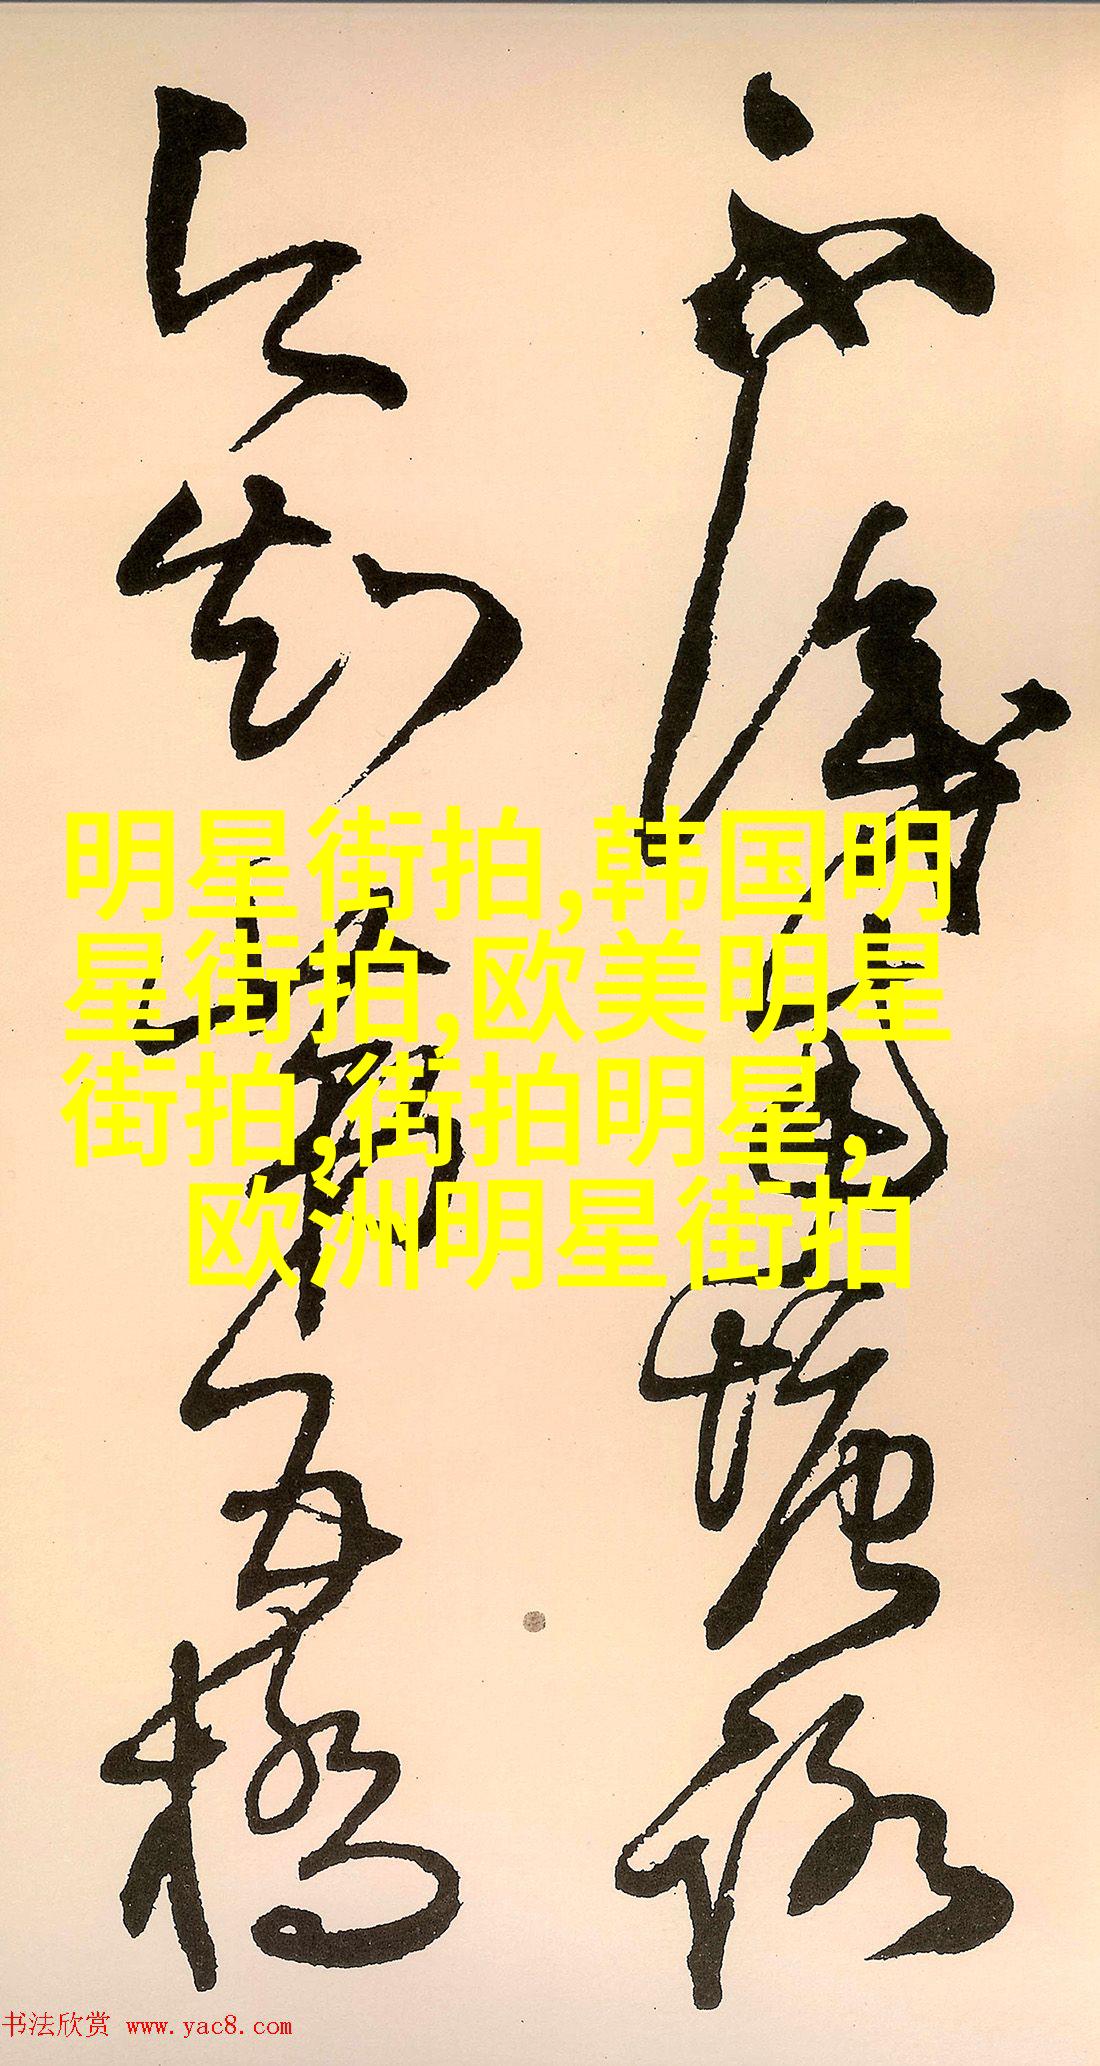 不識南塘路
今知第五橋
明星街拍,韩国明
星街拍,欧美明星
街拍,街拍明星,
欧洲明星街拍
书法欣赏 www.yac8.com